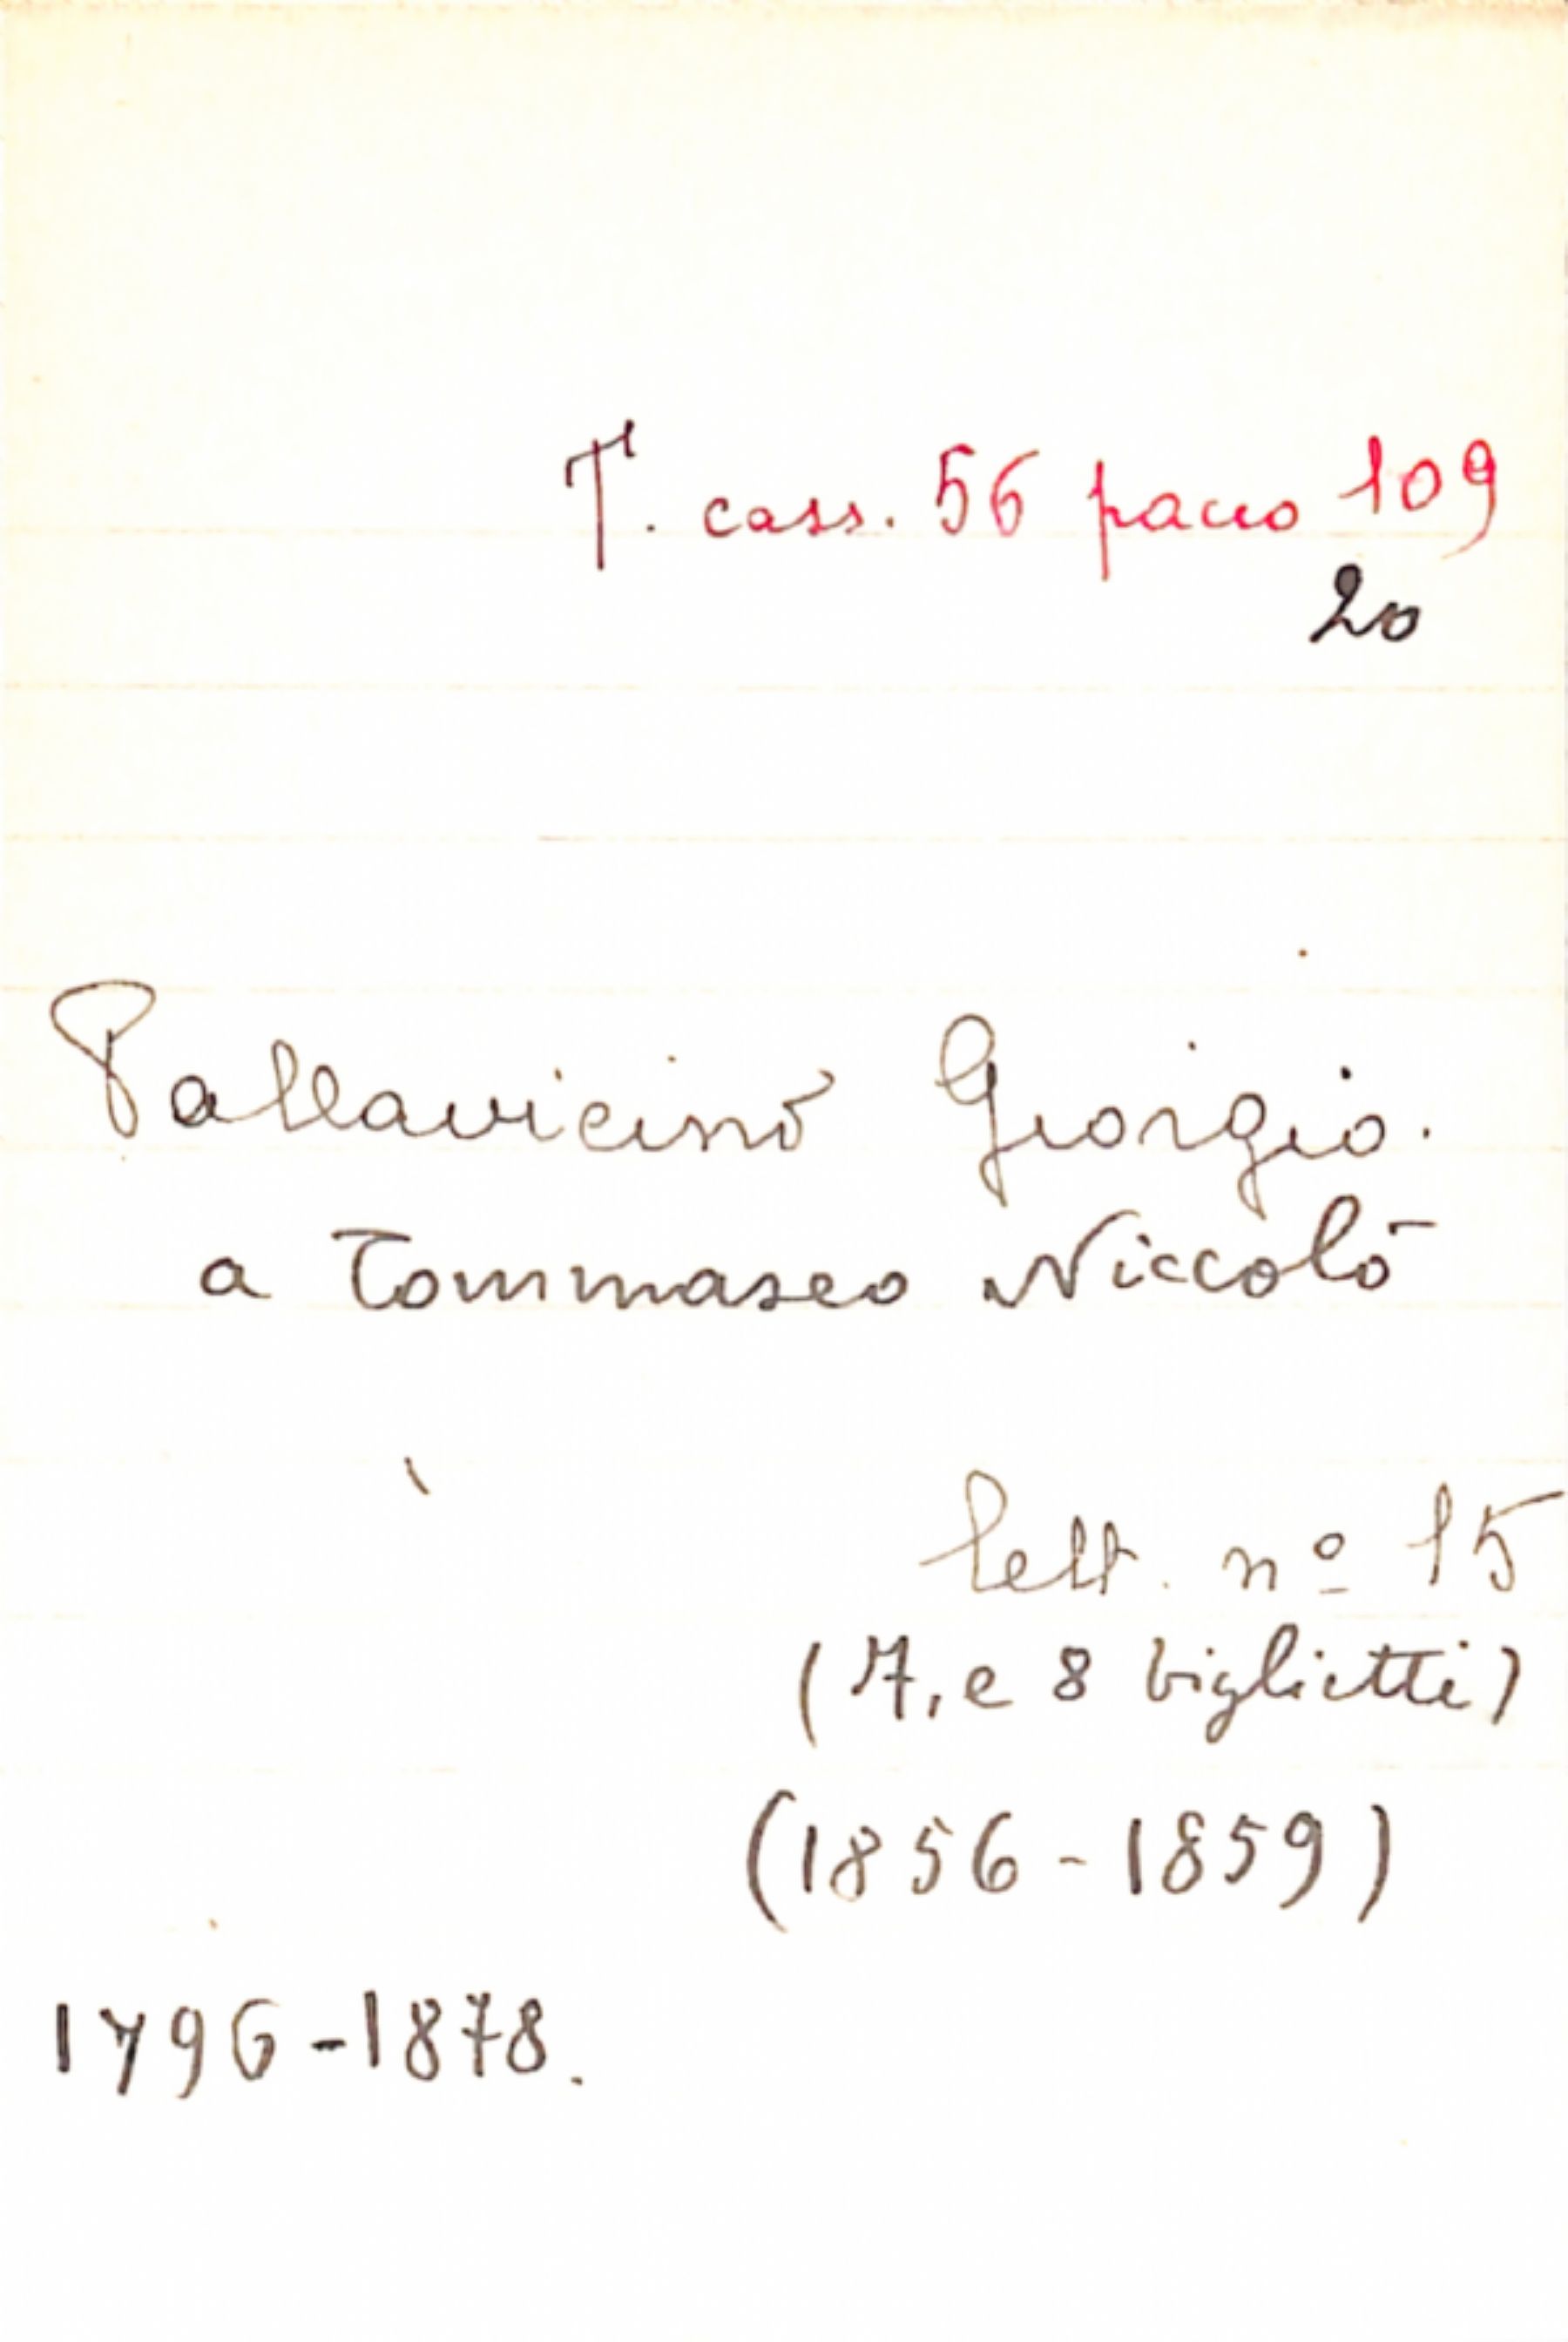 T. cass. 56 pacco 109
20
Pallavicino Giorgio.
a Tommaseo Niccolò
lett. nº 15
(7, e 8 biglietti)
(1856-1859)
1796-1878.